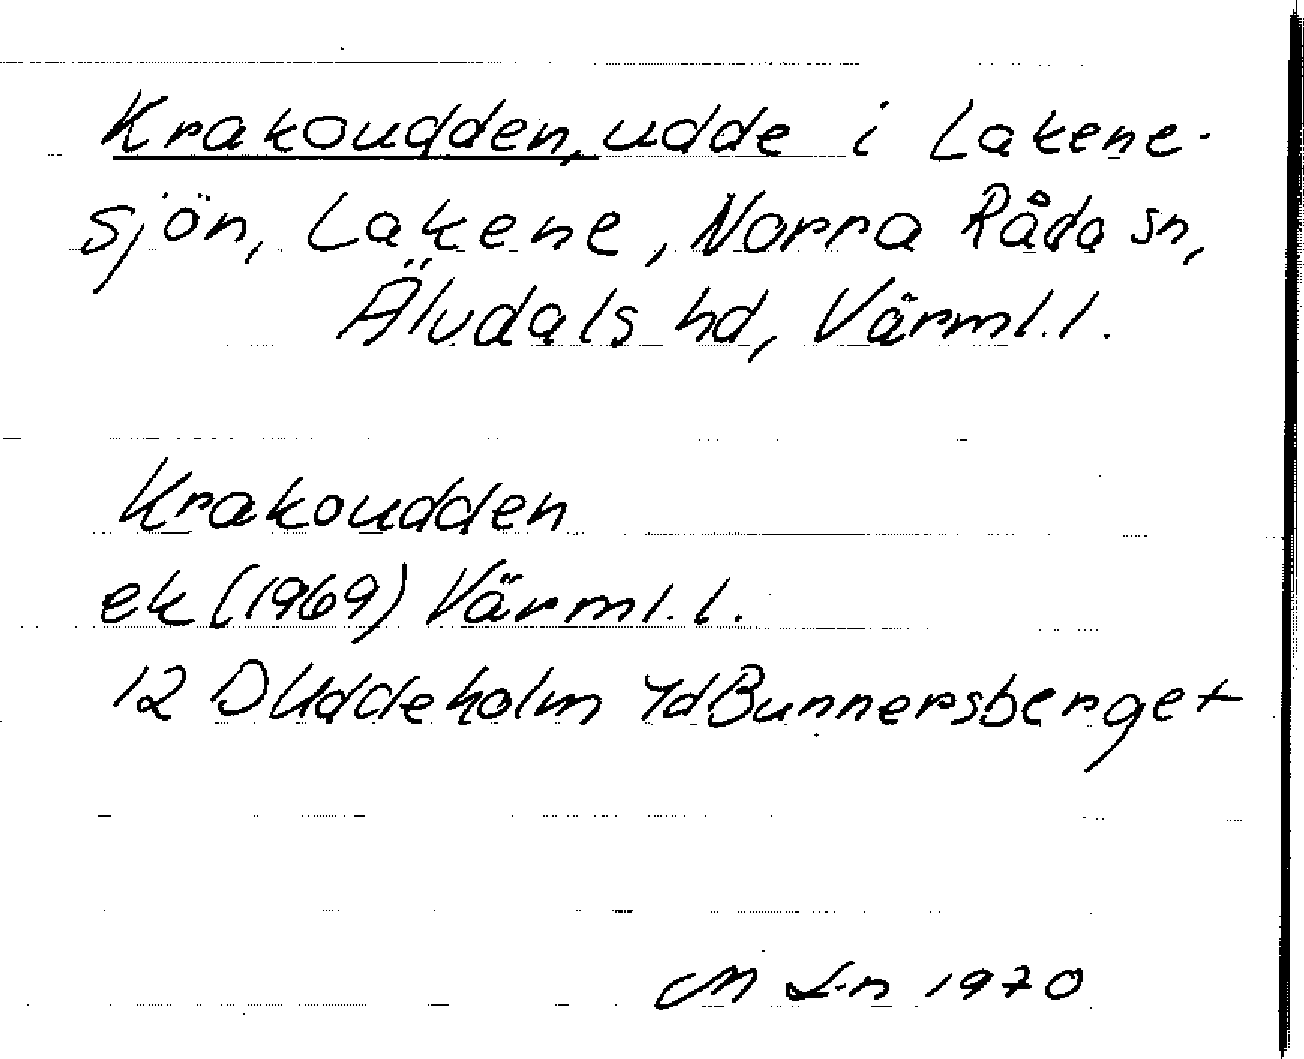 Krakoudden, udde i Lakene-
sjön, Lakene, Norra Råda sn,
Älvdals hd, Värml.l.
Krakoudden
ek (1969) Värml.l.
12 D Uddeholm 7d Bunnersberget
M L-n 1970